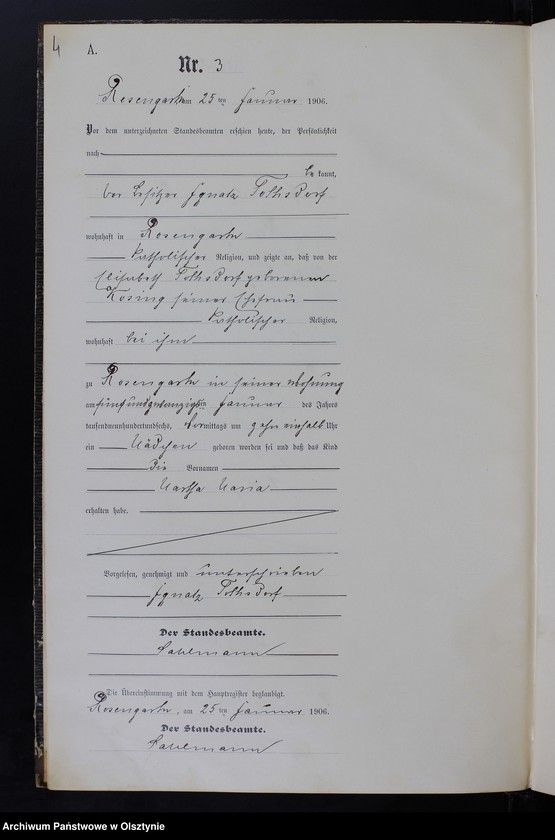 4
A.
Nr. 3
Rosengarth am 25 ten Januar 1906.
Vor dem unterzeichneten Standesbeamten erschien heute, der Persönlichkeit
nach
be kannt,
der Besitzer Ignatz Tolksdorf
wohnhaft in Rosengarth
katholischer Religion, und zeigte an, daß von der
Elisabeth Tolksdorf geborenen
Rosing seiner Ehefrau
katholischer Religion,
wohnhaft bei ihm
zu Rosengarth in seiner Wohnung
am fünfundzwanzigsten Januar des Jahres
tausendneunhundertundsechs, Vormittags um zehn einhalb Uhr
ein Mädchen geboren worden sei und daß das Kind
die Vornamen
Martha Maria
erhalten habe.
Vorgelesen, genehmigt und unterschrieben
Ignatz Tolksdorf
Der Standesbeamte.
Die Übereinstimmung mit dem Hauptregister beglaubigt.
Rosengarth, am 25 ten Januar 1906.
Der Standesbeamte.
Archiwum Państwowe w Olsztynie